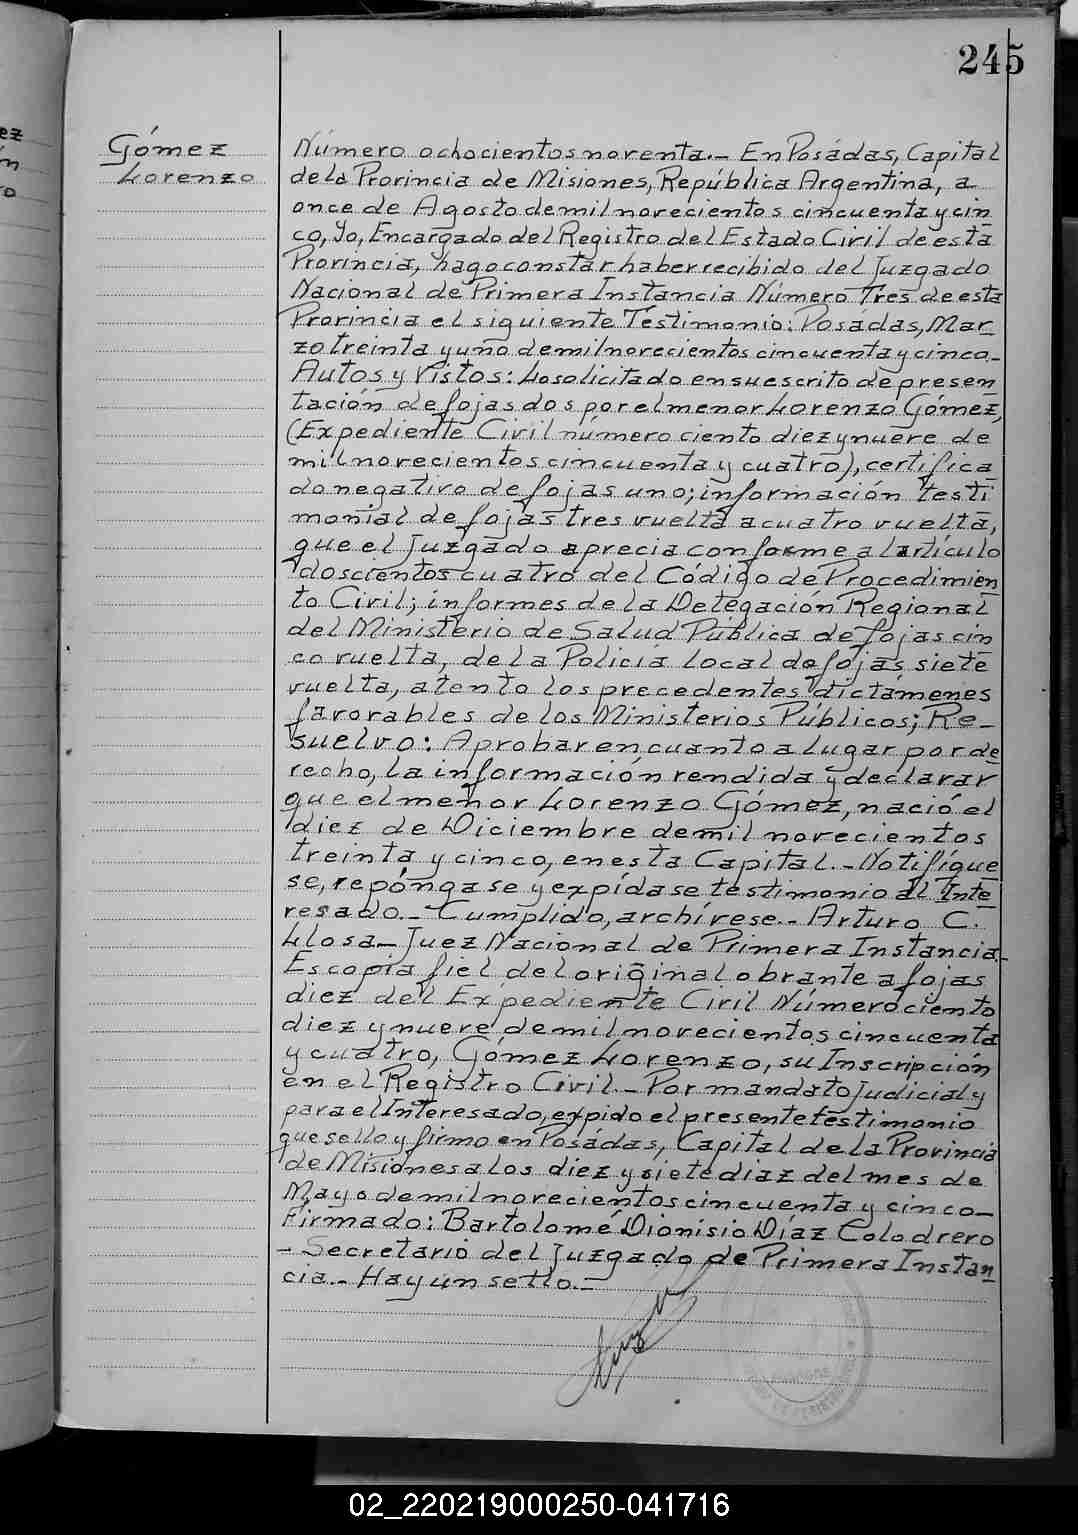 245
Gómez
Lorenzo
Número ochocientos noventa.- En Posádas, Capital
de la Provincia de Misiones, República Argentina, a
once de Agosto de mil novecientos cincuenta y cin
co, Yo, Encargado del Registro del Estado Civil de esta
Provincia, hago constar haber recibido del Juzgado
Nacional de Primera Instancia Número Tres de esta
Provincia el siguiente Testimonio: Posádas, Mar
zo treinta y uno de mil novecientos cincuenta y cinco.-
Autos y Vistos: Lo solicitado en su escrito de presen
tación de fojas dos por el menor Lorenzo Gómez,
(Expediente Civil número ciento diez y nueve de
mil novecientos cincuenta y cuatro), certifica
do negativo de fojas uno; información testi
monial de fojas tres vuelta a cuatro vuelta,
que el Juzgado aprecia conforme al artículo
doscientos cuatro del Código de Procedimien
to Civil; informes de la Delegación Regional
del Ministerio de Salud Pública de fojas cin
co vuelta, de la Policía local de fojas siete
vuelta, atento los precedentes dictámenes
favorables de los Ministerios Públicos; Re-
suelvo: Aprobar en cuanto a lugar por de
recho, la información rendida y declarar
que el menor Lorenzo Gómez, nació el
diez de Diciembre de mil novecientos
treinta y cinco, en esta Capital.- Notifíque
se, repóngase y expídase testimonio al Inte
resado.- Cumplido, archívese.- Arturo C.
Llosa- Juez Nacional de Primera Instancia.-
Es copia fiel del original obrante a fojas
diez del Expediente Civil Número ciento
diez y nueve de mil novecientos cincuenta
y cuatro, Gómez Lorenzo, su Inscripción
en el Registro Civil.- Por mandato Judicial y
para el Interesado, expido el presente testimonio
que sello y firmo en Posádas, Capital de la Provincia
de Misiones a los diez y siete diaz del mes de
Mayo de mil novecientos cincuenta y cinco-
Firmado: Bartolomé Dionisio Díaz Colodrero
- Secretario del Juzgado de Primera Instan
cia.- Hay un sello.-
02_220219000250-041716